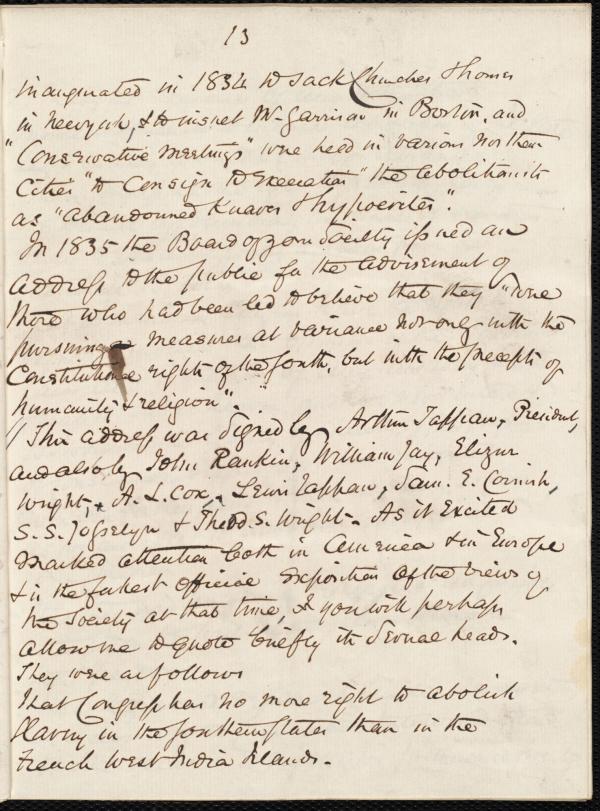 13
inaugurated in 1834 to sack Churches & homes
in Newyork, & to insnet Mr. Garrison in Boston, and
"Conservative Meetings" were held in various Northern
Cities "to Consign to execration" the abolitionists
as "abandonned Knaves & hypocrites".
In 1835 the Board of your Society issued an
address to the public for the advisement of
those who had been led to believe that they "were
pursuing measures at variance not only with the
Constitutional rights of the South, but with the precepts of
humanity & religion".
// This address was signed by Arthur Tappan, President,
and also by John Rankin, William Jay, Elizur
Wright, A. L. Cox, Lewis Tappan, Sam. E. Cornish,
S. S. Jocelyn & Theod. S. Wright. As it excited
marked attention both in America & in Europe
& is the fullest official exposition of the views of
the Society at that time, you will perhaps
allow me to quote briefly its several heads.
They were as follows
That Congress has no more right to abolish
Slavery in the southern States than in the
French West India Islands.